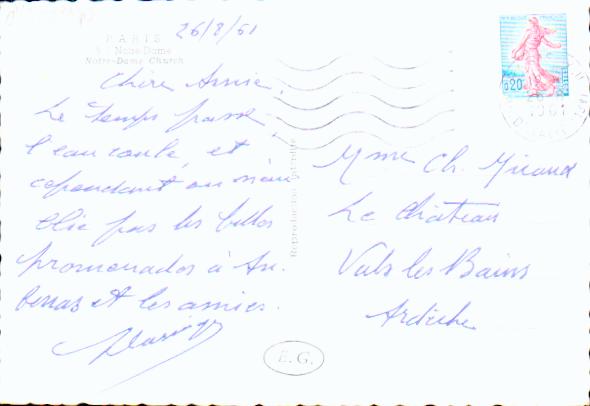 26/8/61
PARIS
Notre-Dame
Notre-Dame Church
Chère Annie,
Le temps passe,
l'eau coule, et
cependant on n'ou
blie pas les belles
promenades à Au-
benas et les amies.
Mme Ch. Miraud
Le Château
Vals les Bains
Ardèche
Reproduction interdite
E.G.
0,20
1961
PARIS